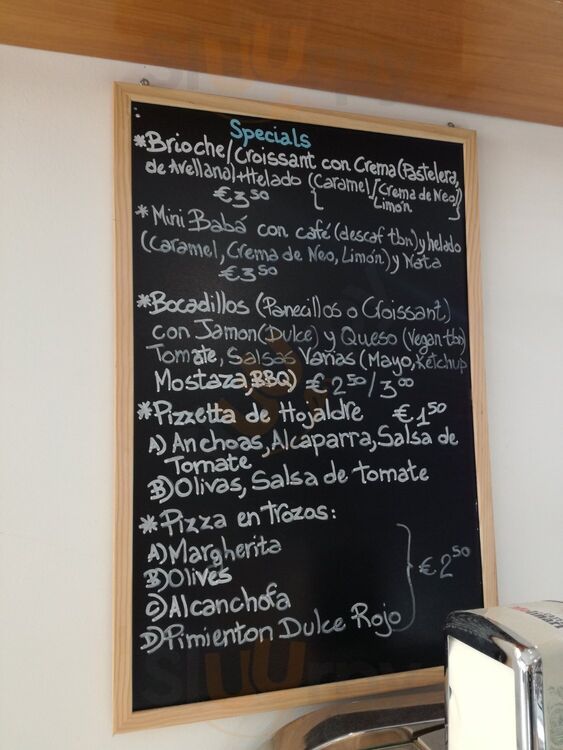 Specials
*Brioche/Croissant con Crema (Pastelera,
de Avellana)+Helado (Caramel/Crema de Neo/
€3,50 Limón
*Mini Babá con café (descaf tbn) y helado
(Caramel, Crema de Neo, Limón) y Nata
€3,50
*Bocadillos (Panecillos o Croissant)
con Jamon (Dulce) y Queso (Vegan-tbn)
Tomate, Salsas Varias (Mayo, Ketchup
Mostaza, BBQ) €2,50/3,00
*Pizzetta de Hojaldre €1,50
A) Anchoas, Alcaparra, Salsa de
Tomate
B) Olivas, Salsa de tomate
*Pizza en trozos:
A) Margherita
B) Olives
C) Alcanchofa
D) Pimienton Dulce Rojo
€2,50